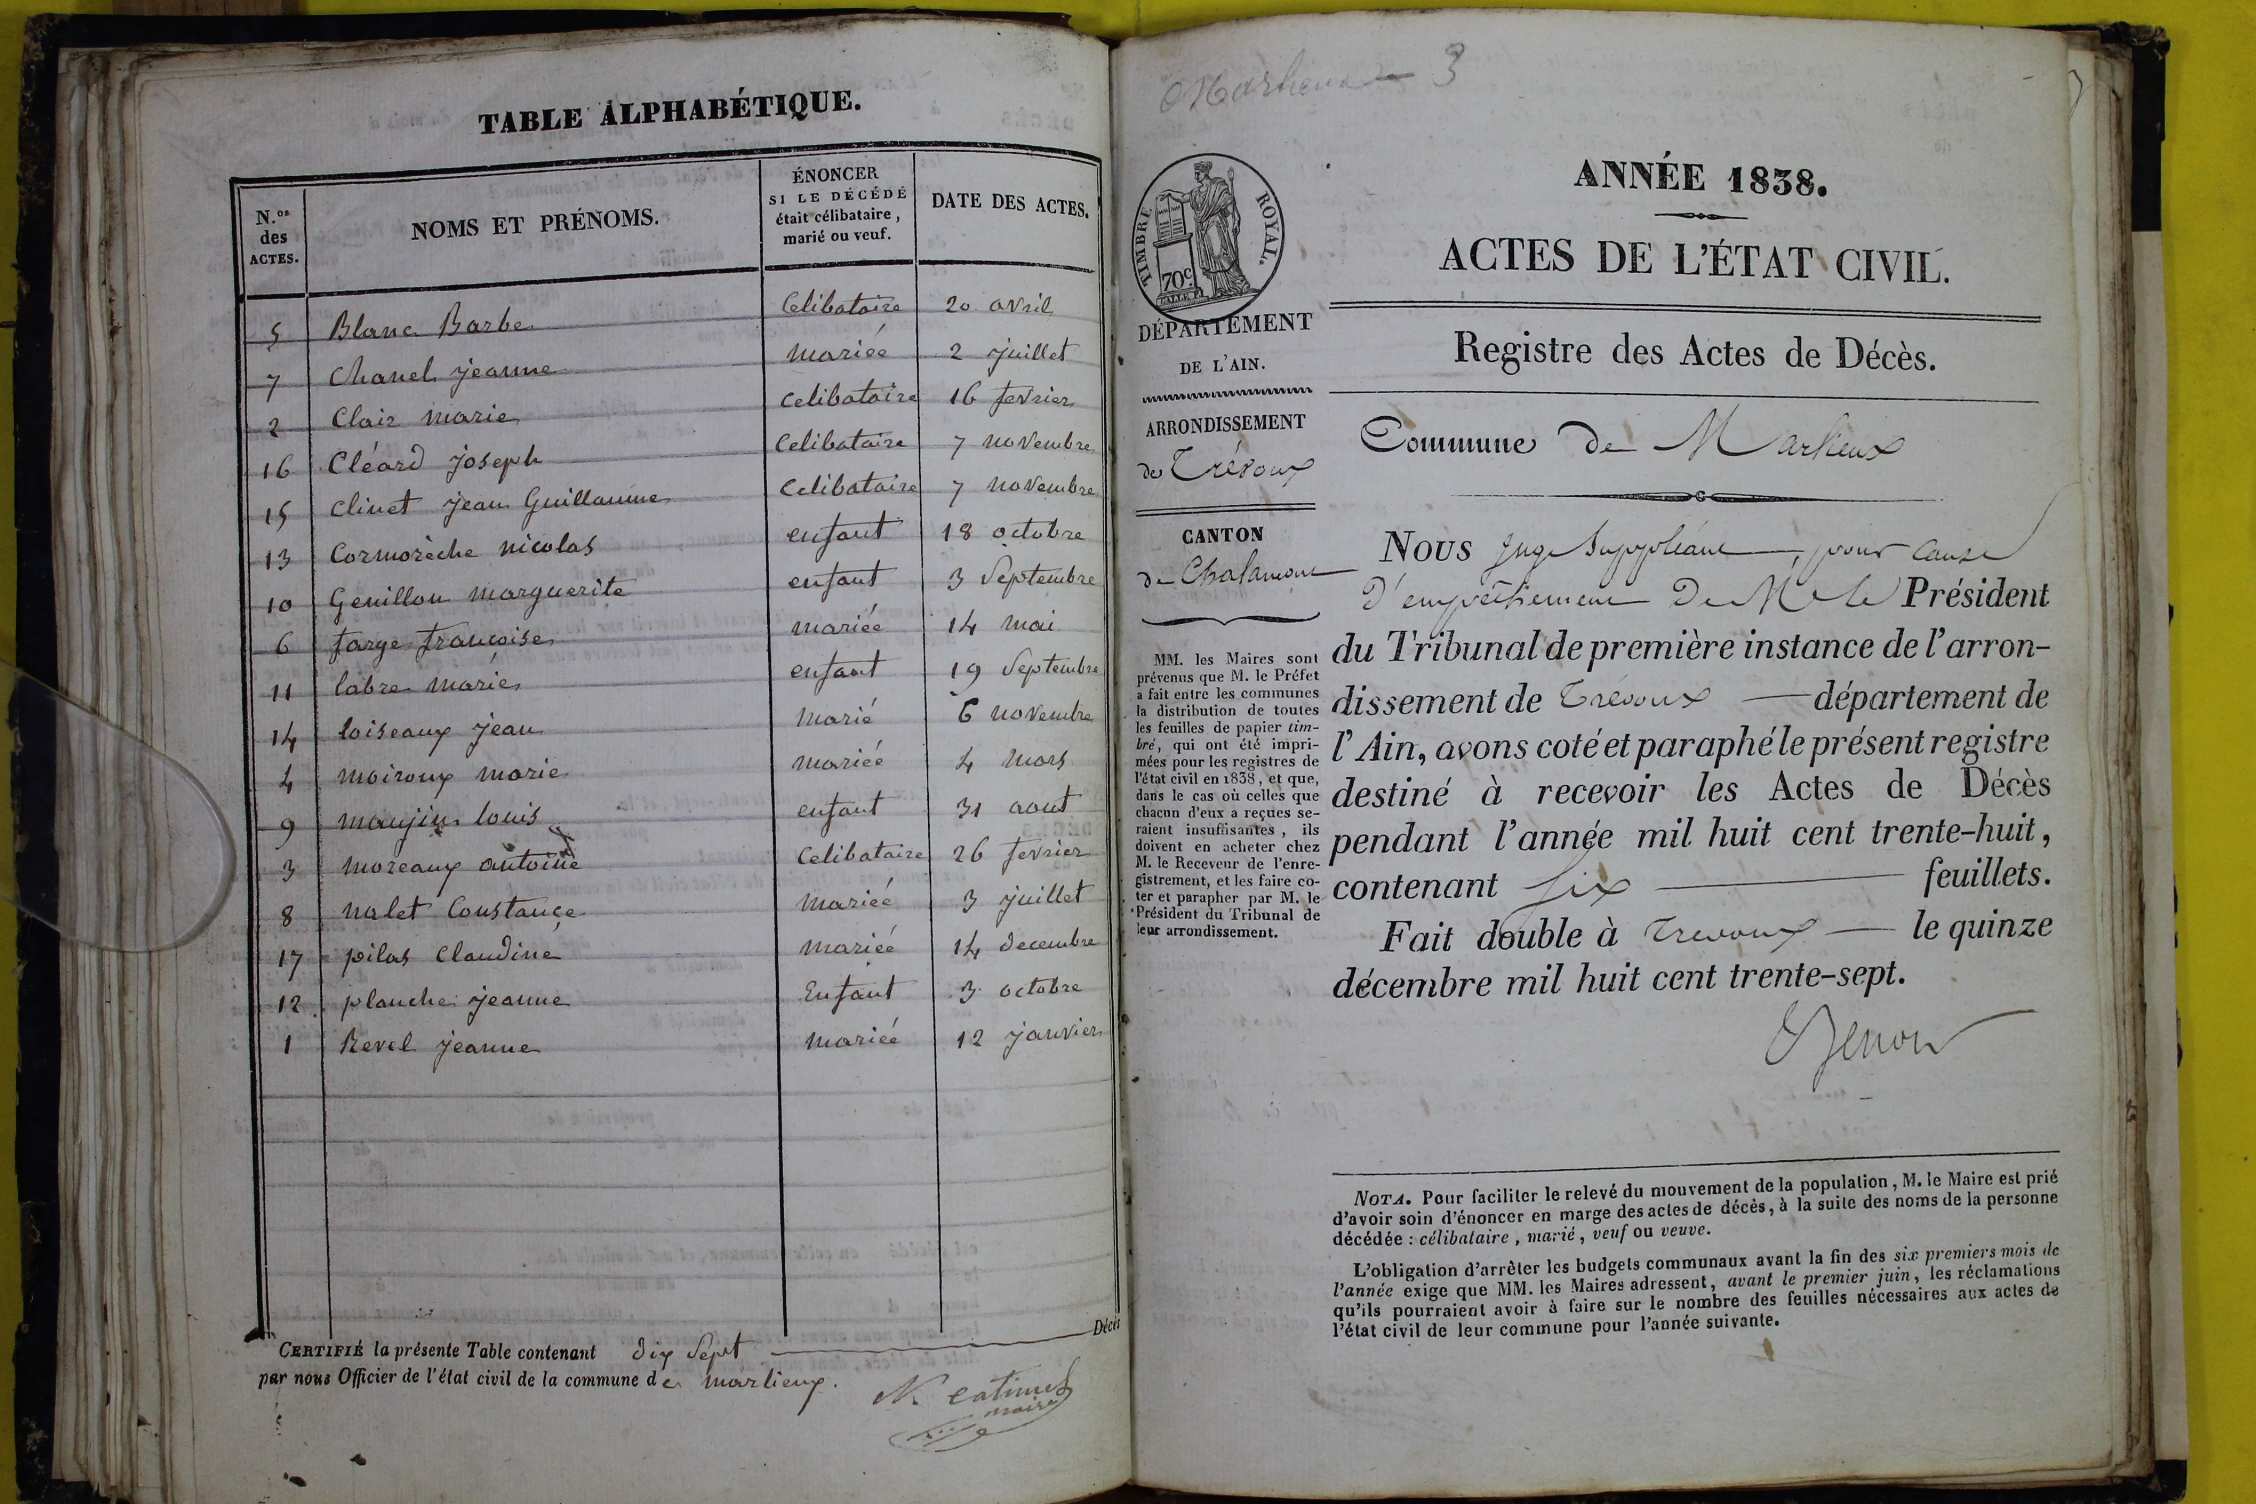 TABLE ALPHABÉTIQUE.
N.os des ACTES. | NOMS ET PRÉNOMS. | ÉNONCER SI LE DÉCÉDÉ était célibataire, marié ou veuf. | DATE DES ACTES.
5 | Blanc Barbe | Celibataire | 20 avril
7 | Chanel jeanne | mariéé | 2 juillet
2 | Clair marie | celibataire | 16 fevrier
16 | Cléard joseph | Celibataire | 7 novembre
15 | Clinet jean Guillaume | Celibataire | 7 novembre
13 | Cormorèche nicolas | enfant | 18 octobre
10 | Genillon marguerite | enfant | 3 Septembre
6 | farge françoise | mariéé | 14 mai
11 | labre marie | enfant | 19 Septembre
14 | loiseaux jean | marié | 6 novembre
4 | moiroux marie | mariéé | 4 mars
9 | maujin louis | enfant | 31 aout
3 | moreaux antoine | Celibataire | 26 fevrier
8 | nalet Constance | mariéé | 3 juillet
17 | pilas Claudine | mariéé | 14 decembre
12 | planche jeanne | Enfant | 3 octobre
1 | Revel jeanne | mariéé | 12 janvier
CERTIFIÉ la présente Table contenant dix Sept Décès
par nous Officier de l'état civil de la commune de marlieux.
maire
Marlieux 3
TIMBRE ROYAL.
70c.
DÉPARTEMENT
DE L'AIN.
ARRONDISSEMENT
de Trévoux
CANTON
de Chalamont
MM. les Maires sont
prévenus que M. le Préfet
a fait entre les communes
la distribution de toutes
les feuilles de papier tim-
bré, qui ont été impri-
mées pour les registres de
l'état civil en 1838, et que,
dans le cas où celles que
chacun d'eux a reçues se-
raient insuffisantes, ils
doivent en acheter chez
M. le Receveur de l'enre-
gistrement, et les faire co-
ter et parapher par M. le
Président du Tribunal de
leur arrondissement.
ANNÉE 1838.
ACTES DE L'ÉTAT CIVIL.
Registre des Actes de Décès.
Commune de Marlieux
NOUS juge Suppléant, pour cause
d'empêchement de M. le Président
du Tribunal de première instance de l'arron-
dissement de Trévoux département de
l'Ain, avons coté et paraphé le présent registre
destiné à recevoir les Actes de Décès
pendant l'année mil huit cent trente-huit,
contenant six feuillets.
Fait double à Trevoux le quinze
décembre mil huit cent trente-sept.
NOTA. Pour faciliter le relevé du mouvement de la population, M. le Maire est prié
d'avoir soin d'énoncer en marge des actes de décès, à la suite des noms de la personne
décédée : célibataire, marié, veuf ou veuve.
L'obligation d'arrêter les budgets communaux avant la fin des six premiers mois de
l'année exige que MM. les Maires adressent, avant le premier juin, les réclamations
qu'ils pourraient avoir à faire sur le nombre des feuilles nécessaires aux actes de
l'état civil de leur commune pour l'année suivante.